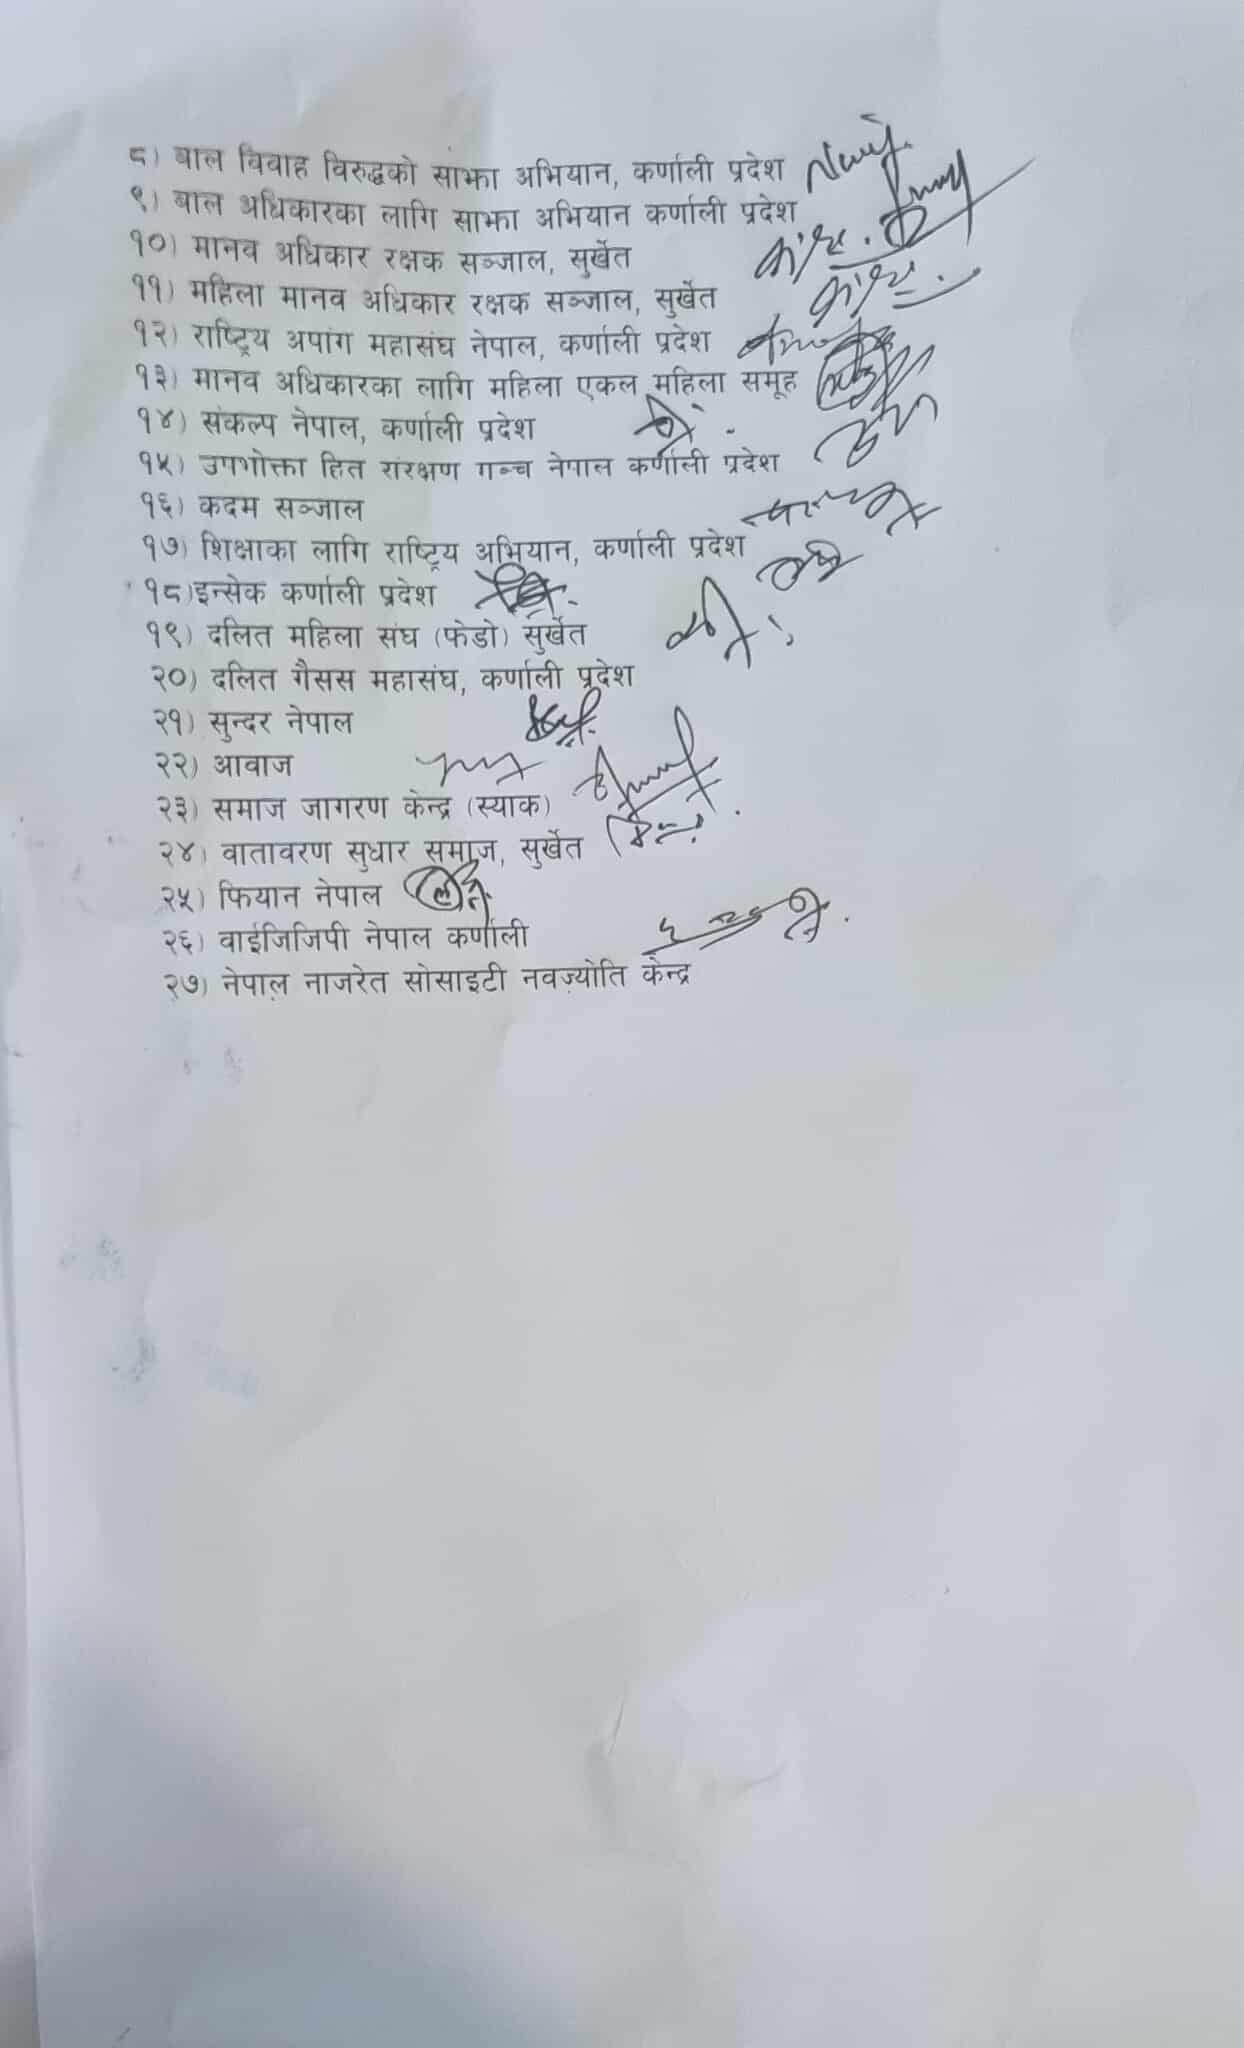 ८) बाल विवाह विरुद्धको साझा अभियान, कर्णाली प्रदेश
९) बाल अधिकारका लागि साझा अभियान कर्णाली प्रदेश
१०) मानव अधिकार रक्षक सञ्जाल, सुर्खेत
११) महिला मानव अधिकार रक्षक सञ्जाल, सुर्खेत
१२) राष्ट्रिय अपांग महासंघ नेपाल, कर्णाली प्रदेश
१३) मानव अधिकारका लागि महिला एकल महिला समूह
१४) संकल्प नेपाल, कर्णाली प्रदेश
१५) उपभोक्ता हित संरक्षण गञ्च नेपाल कर्णाली प्रदेश
१६) कदम सञ्जाल
१७) शिक्षाका लागि राष्ट्रिय अभियान, कर्णाली प्रदेश
१८)इन्सेक कर्णाली प्रदेश
१९) दलित महिला संघ (फेडो) सुर्खेत
२०) दलित गैसस महासंघ, कर्णाली प्रदेश
२१) सुन्दर नेपाल
२२) आवाज
२३) समाज जागरण केन्द्र (स्याक)
२४) वातावरण सुधार समाज, सुर्खेत
२५) फियान नेपाल
२६) वाईजिजिपी नेपाल कर्णाली
२७) नेपाल नाजरेत सोसाइटी नवज्योति केन्द्र